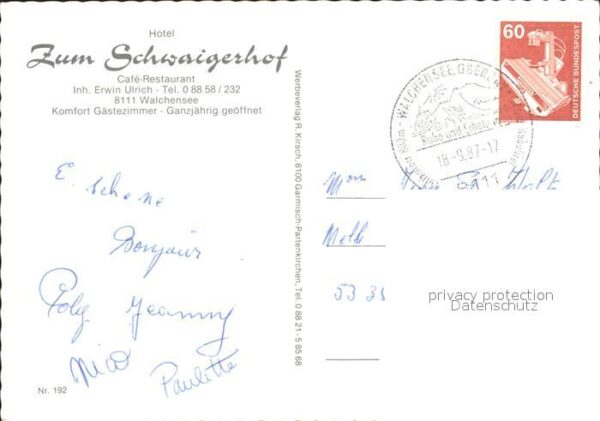 Hotel
Zum Schwaigerhof
Café-Restaurant
Inh. Erwin Ulrich - Tel. 0 88 58 / 232
8111 Walchensee
Komfort Gästezimmer - Ganzjährig geöffnet
Werbeverlag R. Kirsch, 8100 Garmisch-Partenkirchen, Tel. 0 88 21 - 5 85 68
60
DEUTSCHE BUNDESPOST
WALCHENSEE, OBERB
Ruhe und Erholung
18.-9.87-17
8111
Bonjour
Poly Jeanny
Nico
Paulette
Nr. 192
privacy protection
Datenschutz